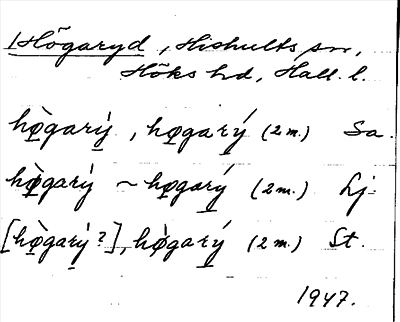 Högaryd, Hishults sn,
Höks hd, Hall. l.
hø̀garý, høgarý (2 m.) Sa.
hø̀garý ~ høgarý (2 m.) Lj.
[hø̀garý?], hø̀garý (2 m.) St.
1947.